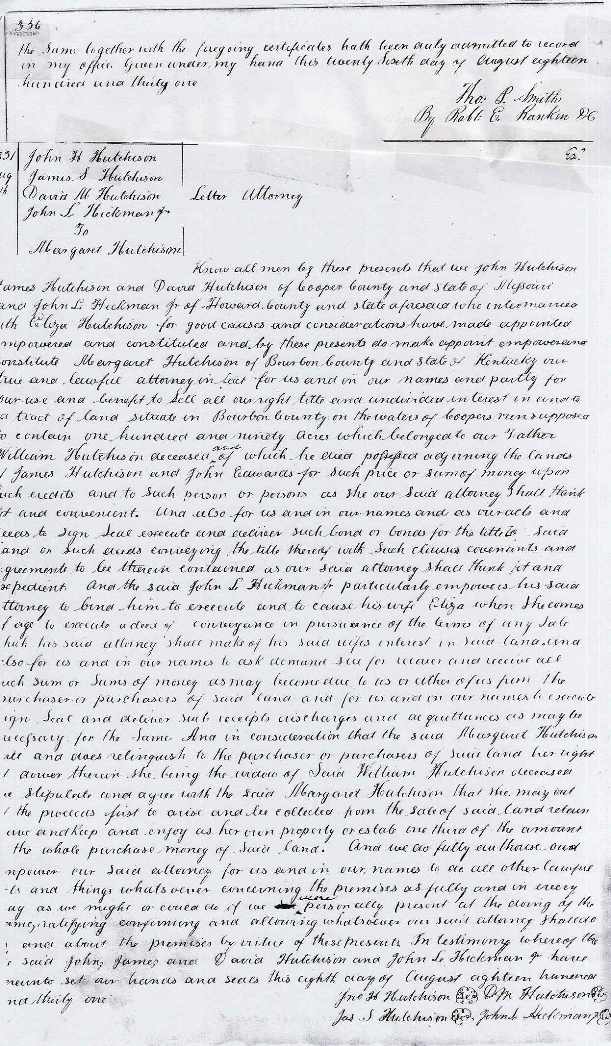 336
the same together with the foregoing certificates hath been duly admitted to record
in my office Given under my hand this twenty sixth day of August eighteen
hundred and thirty one
Thos P. Smith
By Robt E. Rankin DC
John H Hutchison
James S Hutchison
David M Hutchison
John L Hickman Jr
To
Margaret Hutchison
Letter Attorney
Know all men by these presents that we John Hutchison
James Hutchison and David Hutchison of Cooper County and State of Missouri
and John L Hickman Jr of Howard County and state aforesaid who intermarried
with Eliza Hutchison for good causes and considerations have made appointed
mpowered and constituted and by these presents do make appoint empower and
onstitute Margaret Hutchison of Bourbon County and State of Kentucky our
true and lawful attorney in fact for us and in our names and partly for
our use and benefit to sell all our right title and undivided interest in and to
a tract of land situate in Bourbon County on the waters of Coopers run supposed
to contain one hundred and ninety acres which belonged to our Father
William Hutchison deceased and of which he died possessed adjoining the lands
of James Hutchison and John Edwards for such price or sum of money upon
such credits and to such person or persons as she our said attorney shall think
fit and convenient. And also for us and in our names and as our acts and
deeds to sign seal execute and deliver such bond or bonds for the title to said
land or such deeds conveying the title thereof with such clauses covenants and
greements to be therein contained as our said attorney shall think fit and
xpedient. And the said John L Hickman Jr particularly empowers his said
ttorney to bind him to execute and to cause his wife Eliza when she comes
of age to execute a deed of conveyance in pursuance of the terms of any sale
that his said attorney shall make of his said wifes interest in said land. and
also for us and in our names to ask demand sue for recover and receive all
such sum or sums of money as may become due to us or either of us from the
purchaser or purchasers of said land and for us and in our names to execute
sign seal and deliver such receipts discharges and acquittances as may be
necessary for the same And in consideration that the said Margaret Hutchison
and does relinquish to the purchaser or purchasers of said land her right
of dower therein she being the widow of said William Hutchison deceased
we stipulate and agree with the said Margaret Hutchison that she may out
of the proceeds first to arise and be collected from the sale of said land retain
and keep and enjoy as her own property or estate one third of the amount
the whole purchase money of said land. And we do fully authorise and
mpower our said attorney for us and in our names to do all other lawful
acts and things whatsoever concerning the premises as fully and in every
way as we might or could do if we were personally present at the doing of the
same, ratifying confirming and allowing whatsoever our said attorney shall do
in and about the premises by virtue of these presents. In testimony whereof the
said John, James, and David Hutchison and John L Hickman Jr have
hereunto set our hands and seals this eighth day of August eighteen hundred
and thirty one
Jno H Hutchison D. M Hutchison
Jas S Hutchison John L Hickman Jr